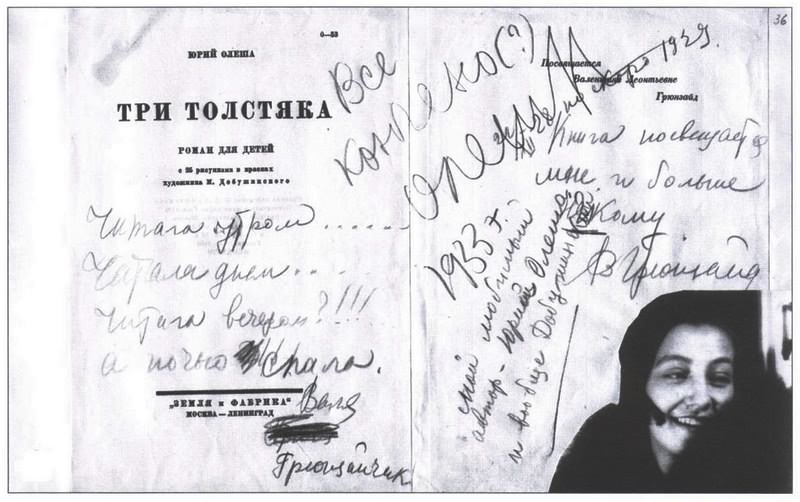 0—53
ЮРИЙ ОЛЕША
ТРИ ТОЛСТЯКА
РОМАН ДЛЯ ДЕТЕЙ
с 25 рисунками в красках
художника М. Добужинского
Читала утром......
Читала днем...
Читала вечером?!!!
а ночью спала.
„ЗЕМЛЯ и ФАБРИКА“
МОСКВА—ЛЕНИНГРАД
Валя
Грюнзайчик
Все
кончено(?)
36
Посвящается
Валентине Леонтьевне
Грюнзайд
1929.
Книга посвещается
мне и больше
никому
В Грюнзайд
1933 г.
мой любимый
автор - Юрий Олеша.
и вообще Добужинский